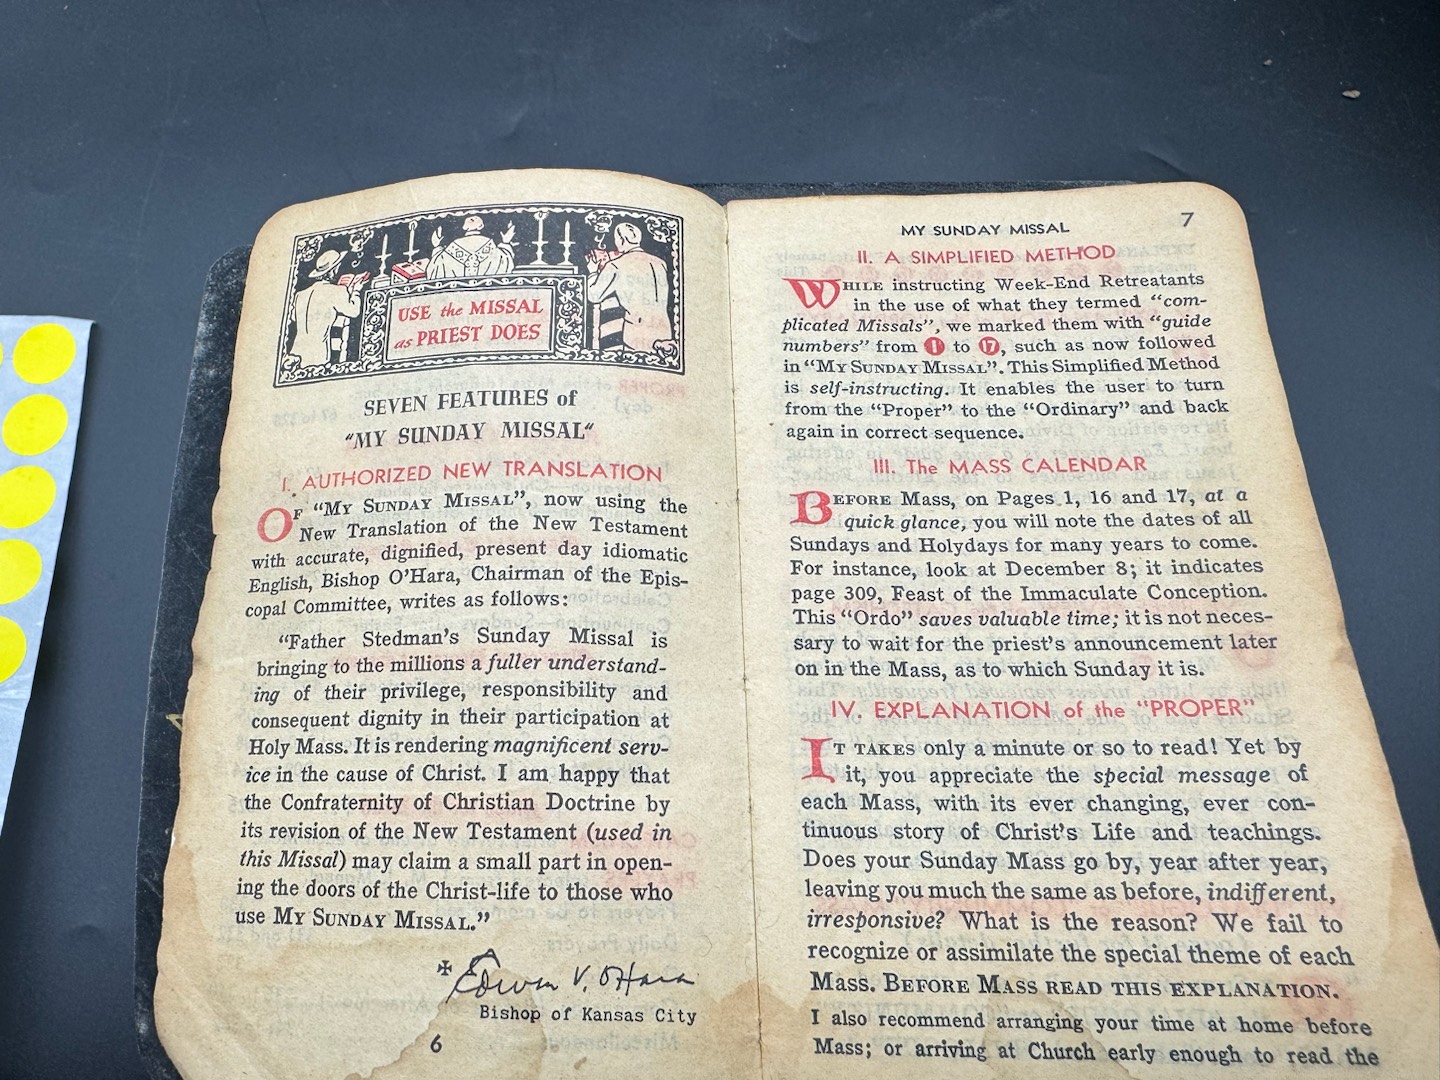 USE the MISSAL
as PRIEST DOES
SEVEN FEATURES of
"MY SUNDAY MISSAL"
I. AUTHORIZED NEW TRANSLATION
OF "MY SUNDAY MISSAL", now using the
New Translation of the New Testament
with accurate, dignified, present day idiomatic
English, Bishop O'Hara, Chairman of the Epis-
copal Committee, writes as follows:
"Father Stedman's Sunday Missal is
bringing to the millions a fuller understand-
ing of their privilege, responsibility and
consequent dignity in their participation at
Holy Mass. It is rendering magnificent serv-
ice in the cause of Christ. I am happy that
the Confraternity of Christian Doctrine by
its revision of the New Testament (used in
this Missal) may claim a small part in open-
ing the doors of the Christ-life to those who
use MY SUNDAY MISSAL."
✠ Edwin V. O'Hara
Bishop of Kansas City
6
MY SUNDAY MISSAL 7
II. A SIMPLIFIED METHOD
WHILE instructing Week-End Retreatants
in the use of what they termed "com-
plicated Missals", we marked them with "guide
numbers" from 1 to 17, such as now followed
in "MY SUNDAY MISSAL". This Simplified Method
is self-instructing. It enables the user to turn
from the "Proper" to the "Ordinary" and back
again in correct sequence.
III. The MASS CALENDAR
BEFORE Mass, on Pages 1, 16 and 17, at a
quick glance, you will note the dates of all
Sundays and Holydays for many years to come.
For instance, look at December 8; it indicates
page 309, Feast of the Immaculate Conception.
This "Ordo" saves valuable time; it is not neces-
sary to wait for the priest's announcement later
on in the Mass, as to which Sunday it is.
IV. EXPLANATION of the "PROPER"
IT TAKES only a minute or so to read! Yet by
it, you appreciate the special message of
each Mass, with its ever changing, ever con-
tinuous story of Christ's Life and teachings.
Does your Sunday Mass go by, year after year,
leaving you much the same as before, indifferent,
irresponsive? What is the reason? We fail to
recognize or assimilate the special theme of each
Mass. BEFORE MASS READ THIS EXPLANATION.
I also recommend arranging your time at home before
Mass; or arriving at Church early enough to read the